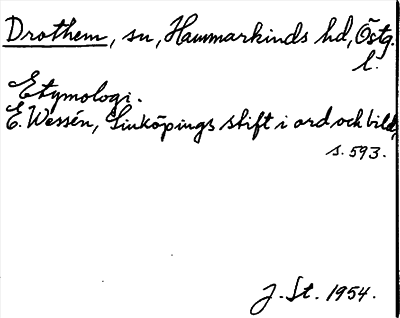 Drothem, sn, Hammarkinds hd, Östg.
l.
Etymologi.
E. Wessén, Linköpings stift i ord och bild,
s. 593.
J. St. 1954.